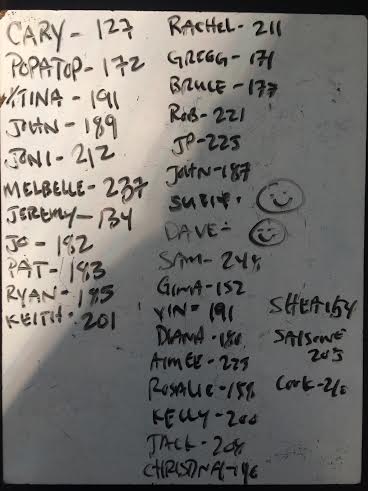 CARY - 127
POPATOP - 172
XTINA - 191
JOHN - 189
JONI - 212
MELBELLE - 237
JEREMY - 134
JO - 182
PAT - 193
RYAN - 185
KEITH - 201
RACHEL - 211
GREGG - 171
BRUCE - 177
ROB - 221
JP - 225
JOHN - 187
DAVE -
SAM - 248
GINA - 152
VIN - 191
DIANA - 180
AIMEE - 225
ROSALIE - 158
KELLY - 200
JACK - 208
203